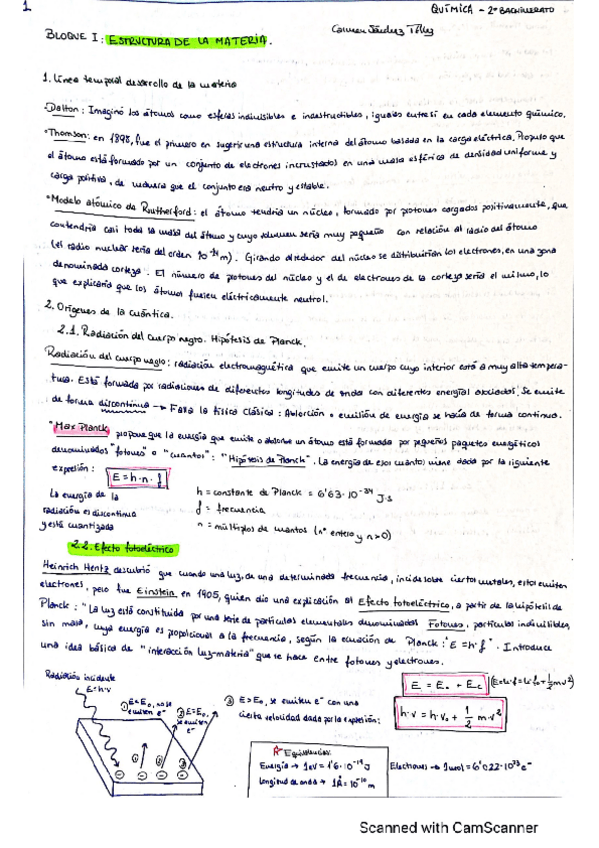 1
QUÍMICA - 2º BACHILLERATO
BLOQUE I: ESTRUCTURA DE LA MATERIA.
Carmen Sánchez
1. Línea temporal desarrollo de la materia
· Dalton: Imaginó los átomos como esferas indivisibles e indestructibles, iguales entre sí en cada elemento químico.
· Thomson: en 1898, fue el primero en sugerir una estructura interna del átomo basada en la carga eléctrica. Propuso que
el átomo está formado por un conjunto de electrones incrustados en una masa esférica de densidad uniforme y
carga positiva, de manera que el conjunto era neutro y estable.
· Modelo atómico de Routherford: el átomo tendría un núcleo, formado por protones cargados positivamente, que
contendría casi toda la masa del átomo y cuyo volumen sería muy pequeño con relación al radio del átomo
(el radio nuclear tenía del orden m). Girando alrededor del núcleo se distribuirían los electrones, en una zona
denominada corteza. El número de protones del núcleo y el de electrones de la corteza sería el mismo, lo
que explicaría que los átomos fuesen eléctricamente neutros.
2. Orígenes de la cuántica.
2.1. Radiación del cuerpo negro. Hipótesis de Planck.
Radiación del cuerpo negro: radiación electromagnética que emite un cuerpo cuyo interior está a muy alta tempera-
tura. Está formada por radiaciones de diferentes longitudes de onda con diferentes energías asociadas. Se emite
de forma discontinua → Para la física clásica: Absorción o emisión de energía se hacía de forma continua.
Max Planck propone que la energía que emite o absorbe un átomo está formada por pequeños paquetes energéticos
denominados "fotones" o "cuantos": "Hipótesis de Planck". La energía de esos cuantos viene dada por la siguiente
expresión: E = h · n · f
La energía de la
radiación es discontinua
y está cuantizada
h = constante de Planck = 6'63 · 10⁻³⁴ J·s
f = frecuencia
n = múltiplos de cuantos (nº entero y n>0)
2.2. Efecto fotoeléctrico
Heinrich Hentz descubrió que cuando una luz, de una determinada frecuencia, incide sobre ciertos metales, estos emiten
electrones, pero fue Einstein en 1905, quien dio una explicación al Efecto fotoeléctrico, a partir de la hipótesis de
Planck: "La luz está constituida por una serie de partículas elementales denominadas Fotones, partículas indivisibles,
sin masa, cuya energía es propocional a la frecuencia, según la ecuación de Planck: E = h·f". Introduce
una idea básica de "interacción luz-materia" que se hace entre fotones y electrones.
Radiación incidente
E = h·ν
① E<E₀, no se emiten e⁻
② E=E₀, se emiten e⁻
③ E>E₀, se emiten e⁻ con una
cierta velocidad dada por la expresión:
E = E₀ + Ec
(E=h·f=h·f₀+½mv²)
h·ν = h·ν₀ + 1/2 m·v²
Equivalencias:
Energía → 1eV = 1'6·10⁻¹⁹ J
Longitud de onda → 1Å = 10⁻¹⁰ m
Electrones → 1mol = 6'022·10²³ e⁻
Scanned with CamScanner